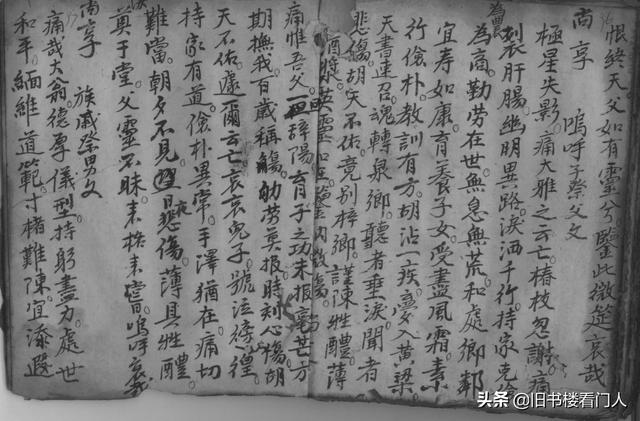 恨終天父如有靈兮鑒此微筵哀哉
尚享　嗚呼子祭父文
極星失影。痛大雅之云亡。椿枝忽謝。痛
裂肝腸。幽明異路。淚洒千行。持家克儉
為農為商。勤勞在世。無息無荒。和處鄉鄰
宜寿如康。育養子女。受盡風霜。素
行儉朴。教訓有方。胡沾一疾。夢入黃粱。
天書速召。魂轉泉鄉。聽者垂淚。聞者
悲傷。胡天不佑。竟別梓鄉。謹陳牲醴薄
酒漿。英靈如在鑒
痛惟吾父。一旦辭陽。育子之功未報毫芒。方
期撫我。百歲稱觴。劬勞莫报。時刻心傷。胡
天不佑。遽爾云亡。哀哀兒子。號泣徬徨。
持家有道。儉朴異常。手澤猶在。痛切
難當。朝夕不見。悲傷。薄具牲醴。
奠于堂。父靈不昧。來格來嘗。嗚呼哀哉
尚享　族戚祭男文
痛哉大翁。德厚儀型。持躬盡力。處世
和平。緬維道範。寸楮難陳。宜添遐
头条 @旧书楼看门人